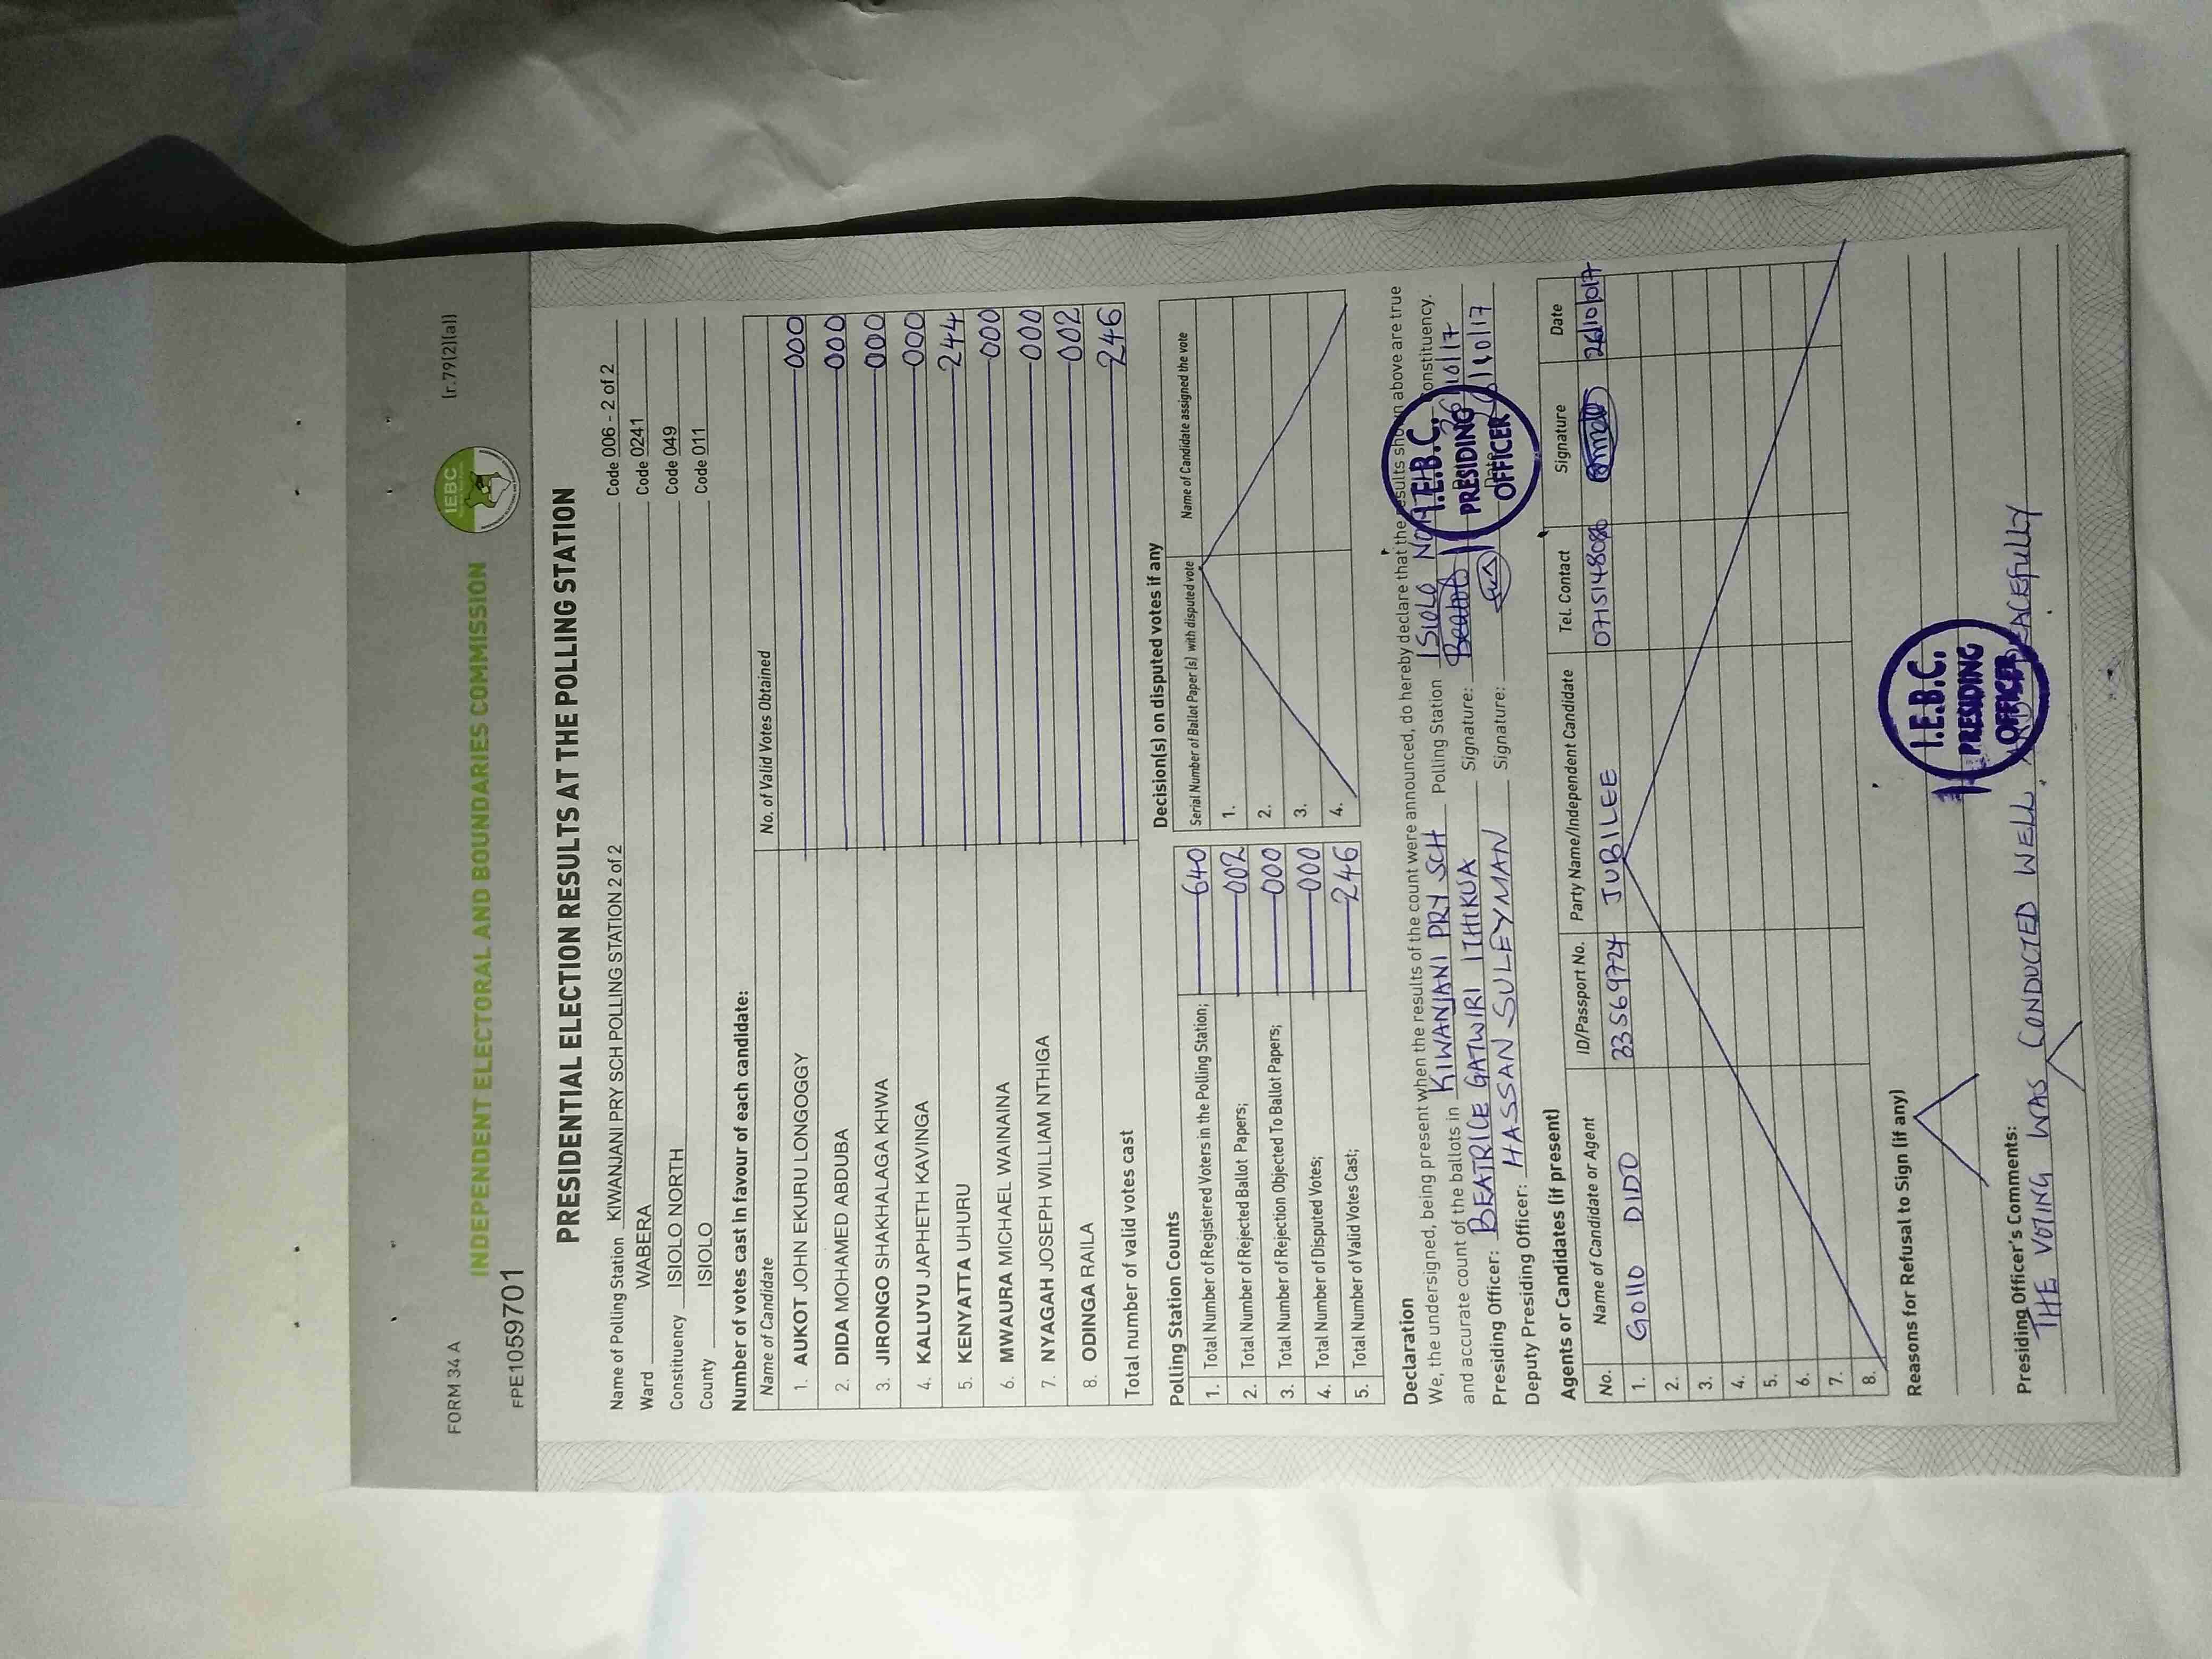 FORM 34 A
(r.79(2)(a))
INDEPENDENT ELECTORAL AND BOUNDARIES COMMISSION
IEBC
FPE1059701
PRESIDENTIAL ELECTION RESULTS AT THE POLLING STATION
Name of Polling Station KIWANJANI PRY SCH POLLING STATION 2 of 2 Code 006 - 2 of 2
Ward WABERA Code 0241
Constituency ISIOLO NORTH Code 049
County ISIOLO Code 011
Number of votes cast in favour of each candidate:
Name of Candidate No. of Valid Votes Obtained
1. AUKOT JOHN EKURU LONGOGGY 000
2. DIDA MOHAMED ABDUBA 000
3. JIRONGO SHAKHALAGA KHWA 000
4. KALUYU JAPHETH KAVINGA 000
5. KENYATTA UHURU 244
6. MWAURA MICHAEL WAINAINA 000
7. NYAGAH JOSEPH WILLIAM NTHIGA 000
8. ODINGA RAILA 002
Total number of valid votes cast 246
Polling Station Counts
1. Total Number of Registered Voters in the Polling Station; 640
2. Total Number of Rejected Ballot Papers; 002
3. Total Number of Rejection Objected To Ballot Papers; 000
4. Total Number of Disputed Votes; 000
5. Total Number of Valid Votes Cast; 246
Decision(s) on disputed votes if any
Serial Number of Ballot Paper (s) with disputed vote Name of Candidate assigned the vote
1.
2.
3.
4.
Declaration
We, the undersigned, being present when the results of the count were announced, do hereby declare that the results shown above are true
and accurate count of the ballots in KIWANJANI PRY SCH Polling Station ISIOLO NORTH Constituency.
Presiding Officer: BEATRICE GATWIRI ITHIKUA Signature: 10/17
Deputy Presiding Officer: HASSAN SULEYMAN Signature: Date 10/17
I.E.B.C.
PRESIDING
OFFICER
Agents or Candidates (if present)
No. Name of Candidate or Agent ID/Passport No. Party Name/Independent Candidate Tel. Contact Signature Date
1. GOllO DIDO 33569724 JUBILEE 0715148086 26/10/017
2.
3.
4.
5.
6.
7.
8.
Reasons for Refusal to Sign (if any)
I.E.B.C.
PRESIDING
OFFICER
Presiding Officer's Comments:
THE VOTING WAS CONDUCTED WELL PEACEfully